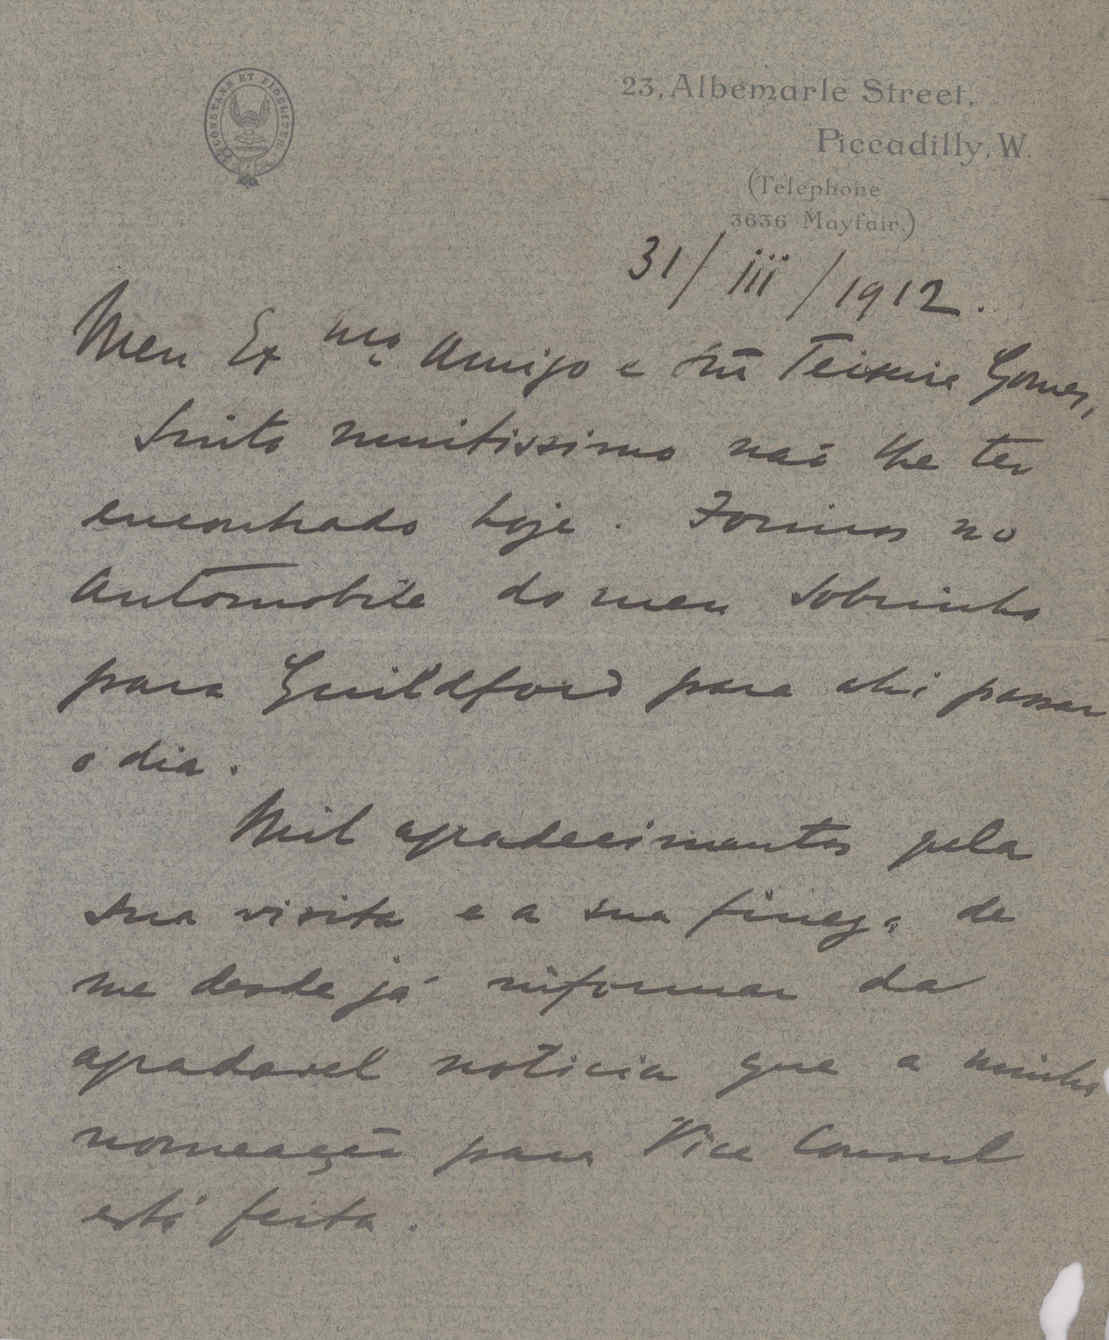 CONSTANS ET FIDELITATE
23, Albemarle Street,
Piccadilly, W.
(Telephone
3636 Mayfair.)
31/iii/1912.
Meu Exmo Amigo e Snr Teixeira Gomes,
Sinto muitissimo não lhe ter
encontrado hoje. Fomos no
automobile do meu sobrinho
para Guildford para ahi passar
o dia.
Mil agradecimentos pela
sua visita e a sua fineza de
me desde já informar da
agradavel noticia que a minha
nomeação para Vice Consul
está feita.